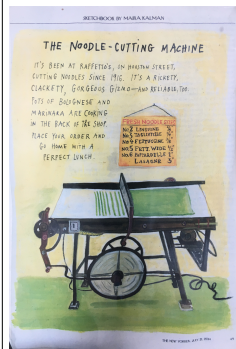 SKETCHBOOK BY MAIRA KALMAN
THE NOODLE-CUTTING MACHINE
IT'S BEEN AT RAFFETTO'S, ON HOUSTON STREET,
CUTTING NOODLES SINCE 1916. IT'S A RICKETY,
CLACKETY, GORGEOUS GIZMO—AND RELIABLE, TOO.
POTS OF BOLOGNESE AND
MARINARA ARE COOKING
IN THE BACK OF THE SHOP.
PLACE YOUR ORDER AND
GO HOME WITH A
PERFECT LUNCH.
NOODLE
No.2 LINGUINE
No.3 TAGLIATELLE
No.4 FETTUCCINE
No.5 FETT. WIDE
No.6 PAPPARDELLE
LASAGNE
THE NEW YORKER, JULY